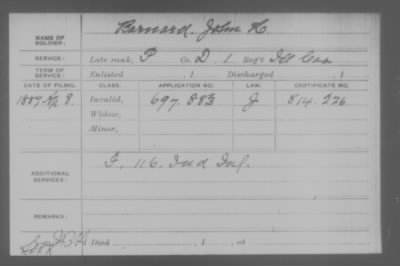 NAME OF SOLDIER: Barnard, John H.
SERVICE: Late rank, P Co. D, 1 Reg't
TERM OF SERVICE: Enlisted , 1 Discharged , 1
DATE OF FILING. CLASS. APPLICATION NO. LAW. CERTIFICATE NO.
1889, 8. Invalid, 697.883 J 814.226
Widow,
Minor,
ADDITIONAL SERVICES: F. 116. Ind Inf.
REMARKS:
Died , 1 , at